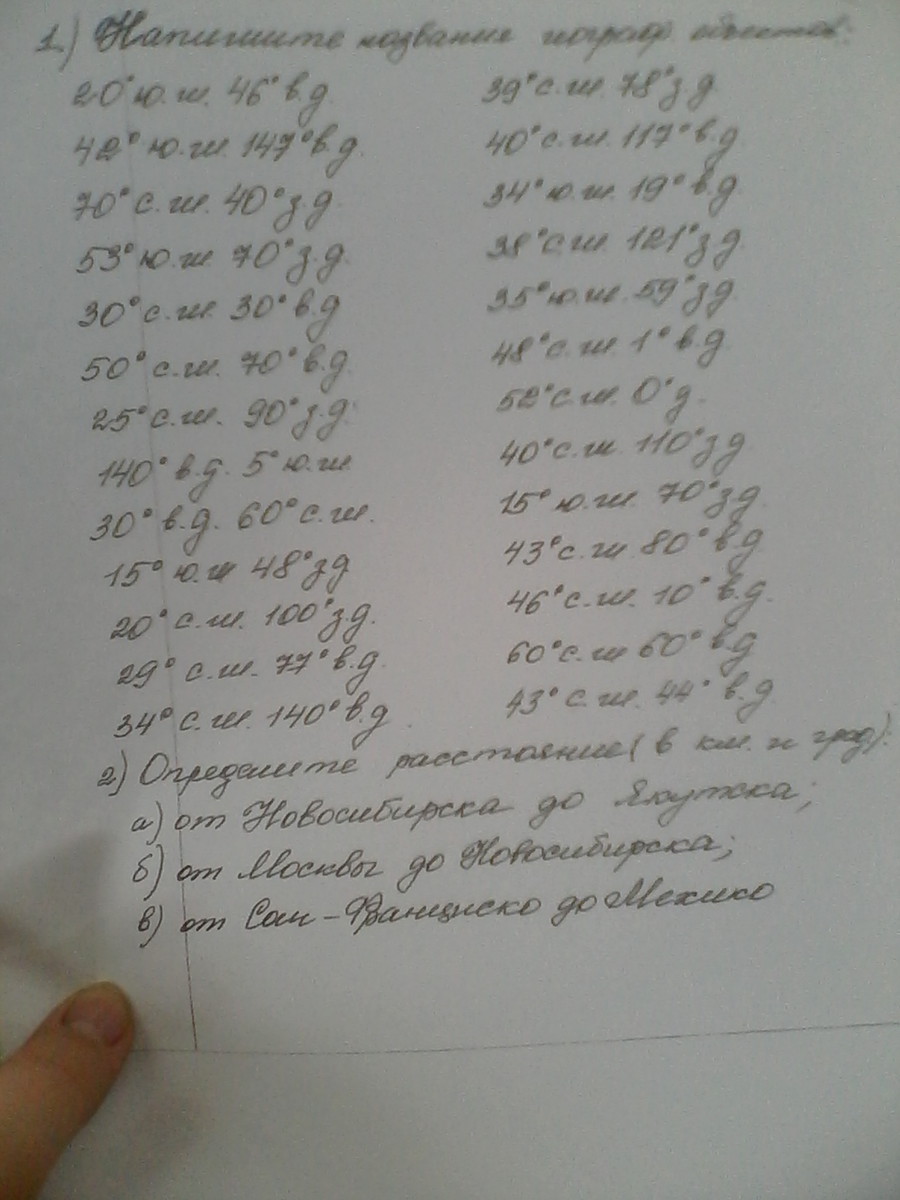 1.) Напишите названия географ. объектов:
20° ю.ш. 46° в.д.
42° ю.ш. 147° в.д.
70° с.ш. 40° з.д.
53° ю.ш. 70° з.д.
30° с.ш. 30° в.д
50° с.ш. 70° в.д.
25° с.ш. 90° з.д.
140° в.д. 5° ю.ш
30° в.д. 60° с.ш.
15° ю.ш 48° з д
20° с.ш. 100° з.д.
29° с.ш. 77° в.д.
34° с.ш. 140° в.д.
39° с.ш. 78° з.д
40° с.ш. 117° в.д
34° ю.ш. 19° в.д.
38° с.ш. 121° з д
35° ю.ш. 59° з д.
48° с.ш. 1° в.д
52° с.ш. 0° д.
40° с.ш 110° з д
15° ю.ш. 70° з д
43° с.ш 80° в.д
46° с.ш. 10° в.д.
60° с.ш 60° в.д
43° с.ш. 44° в.д
2) Определите расстояние (в км. и град):
а) от Новосибирска до Якутска;
б) от Москвы до Новосибирска;
в) от Сан-Франциско до Мехико